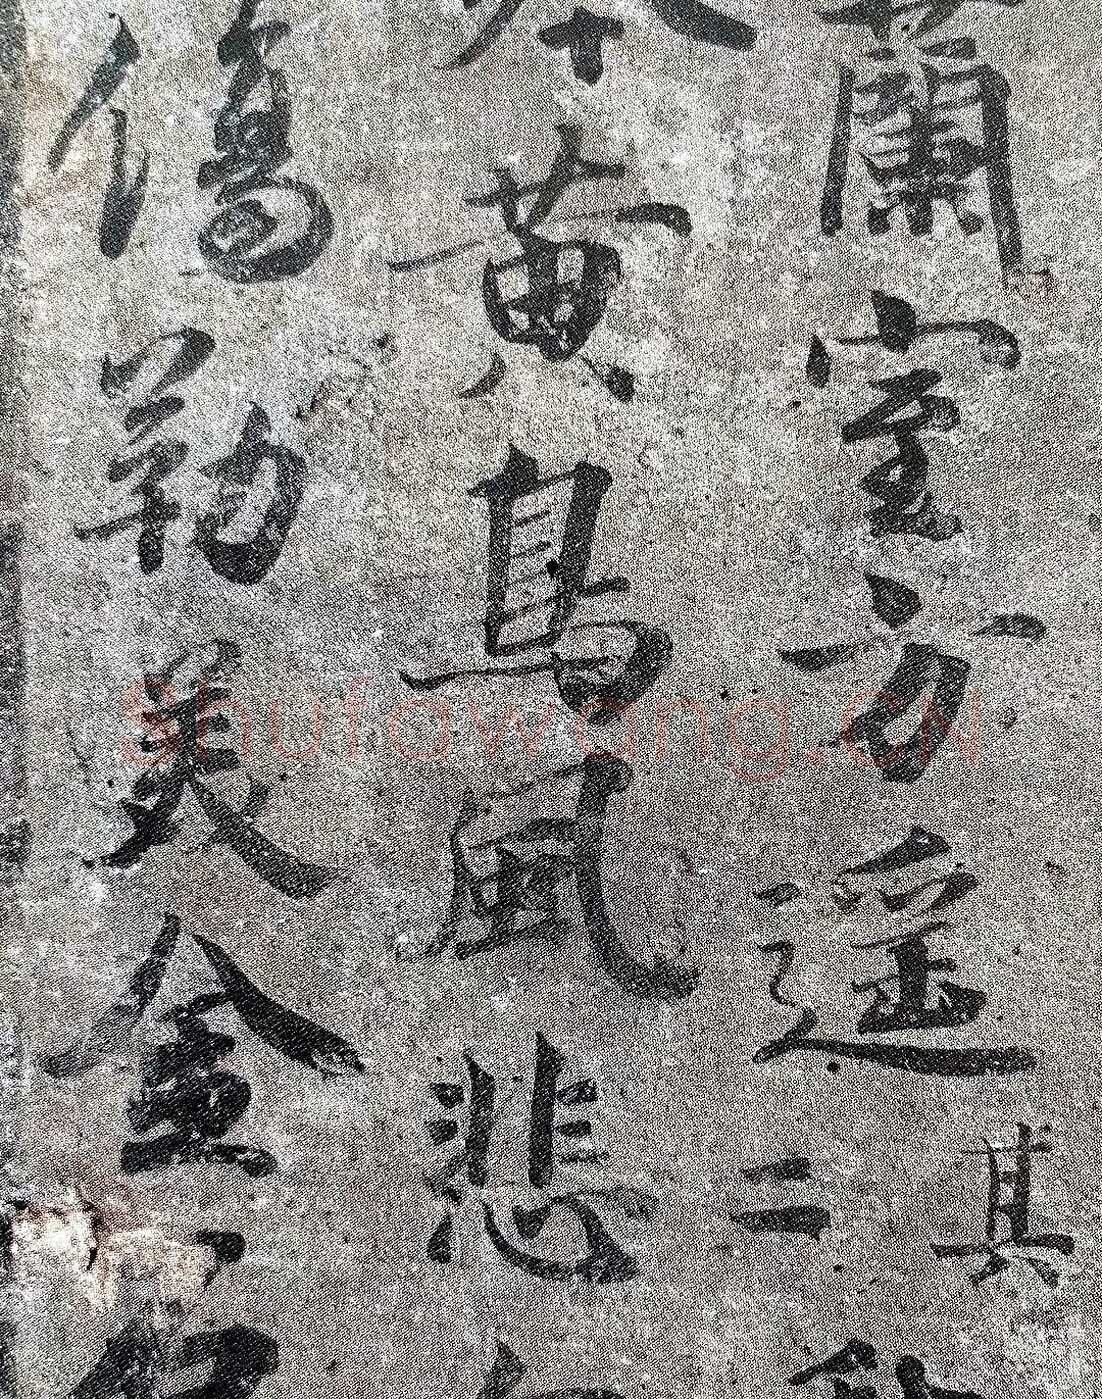 蘭室方遥 其二
黄鳥風悲
傷勒美金
Shufawang.CN